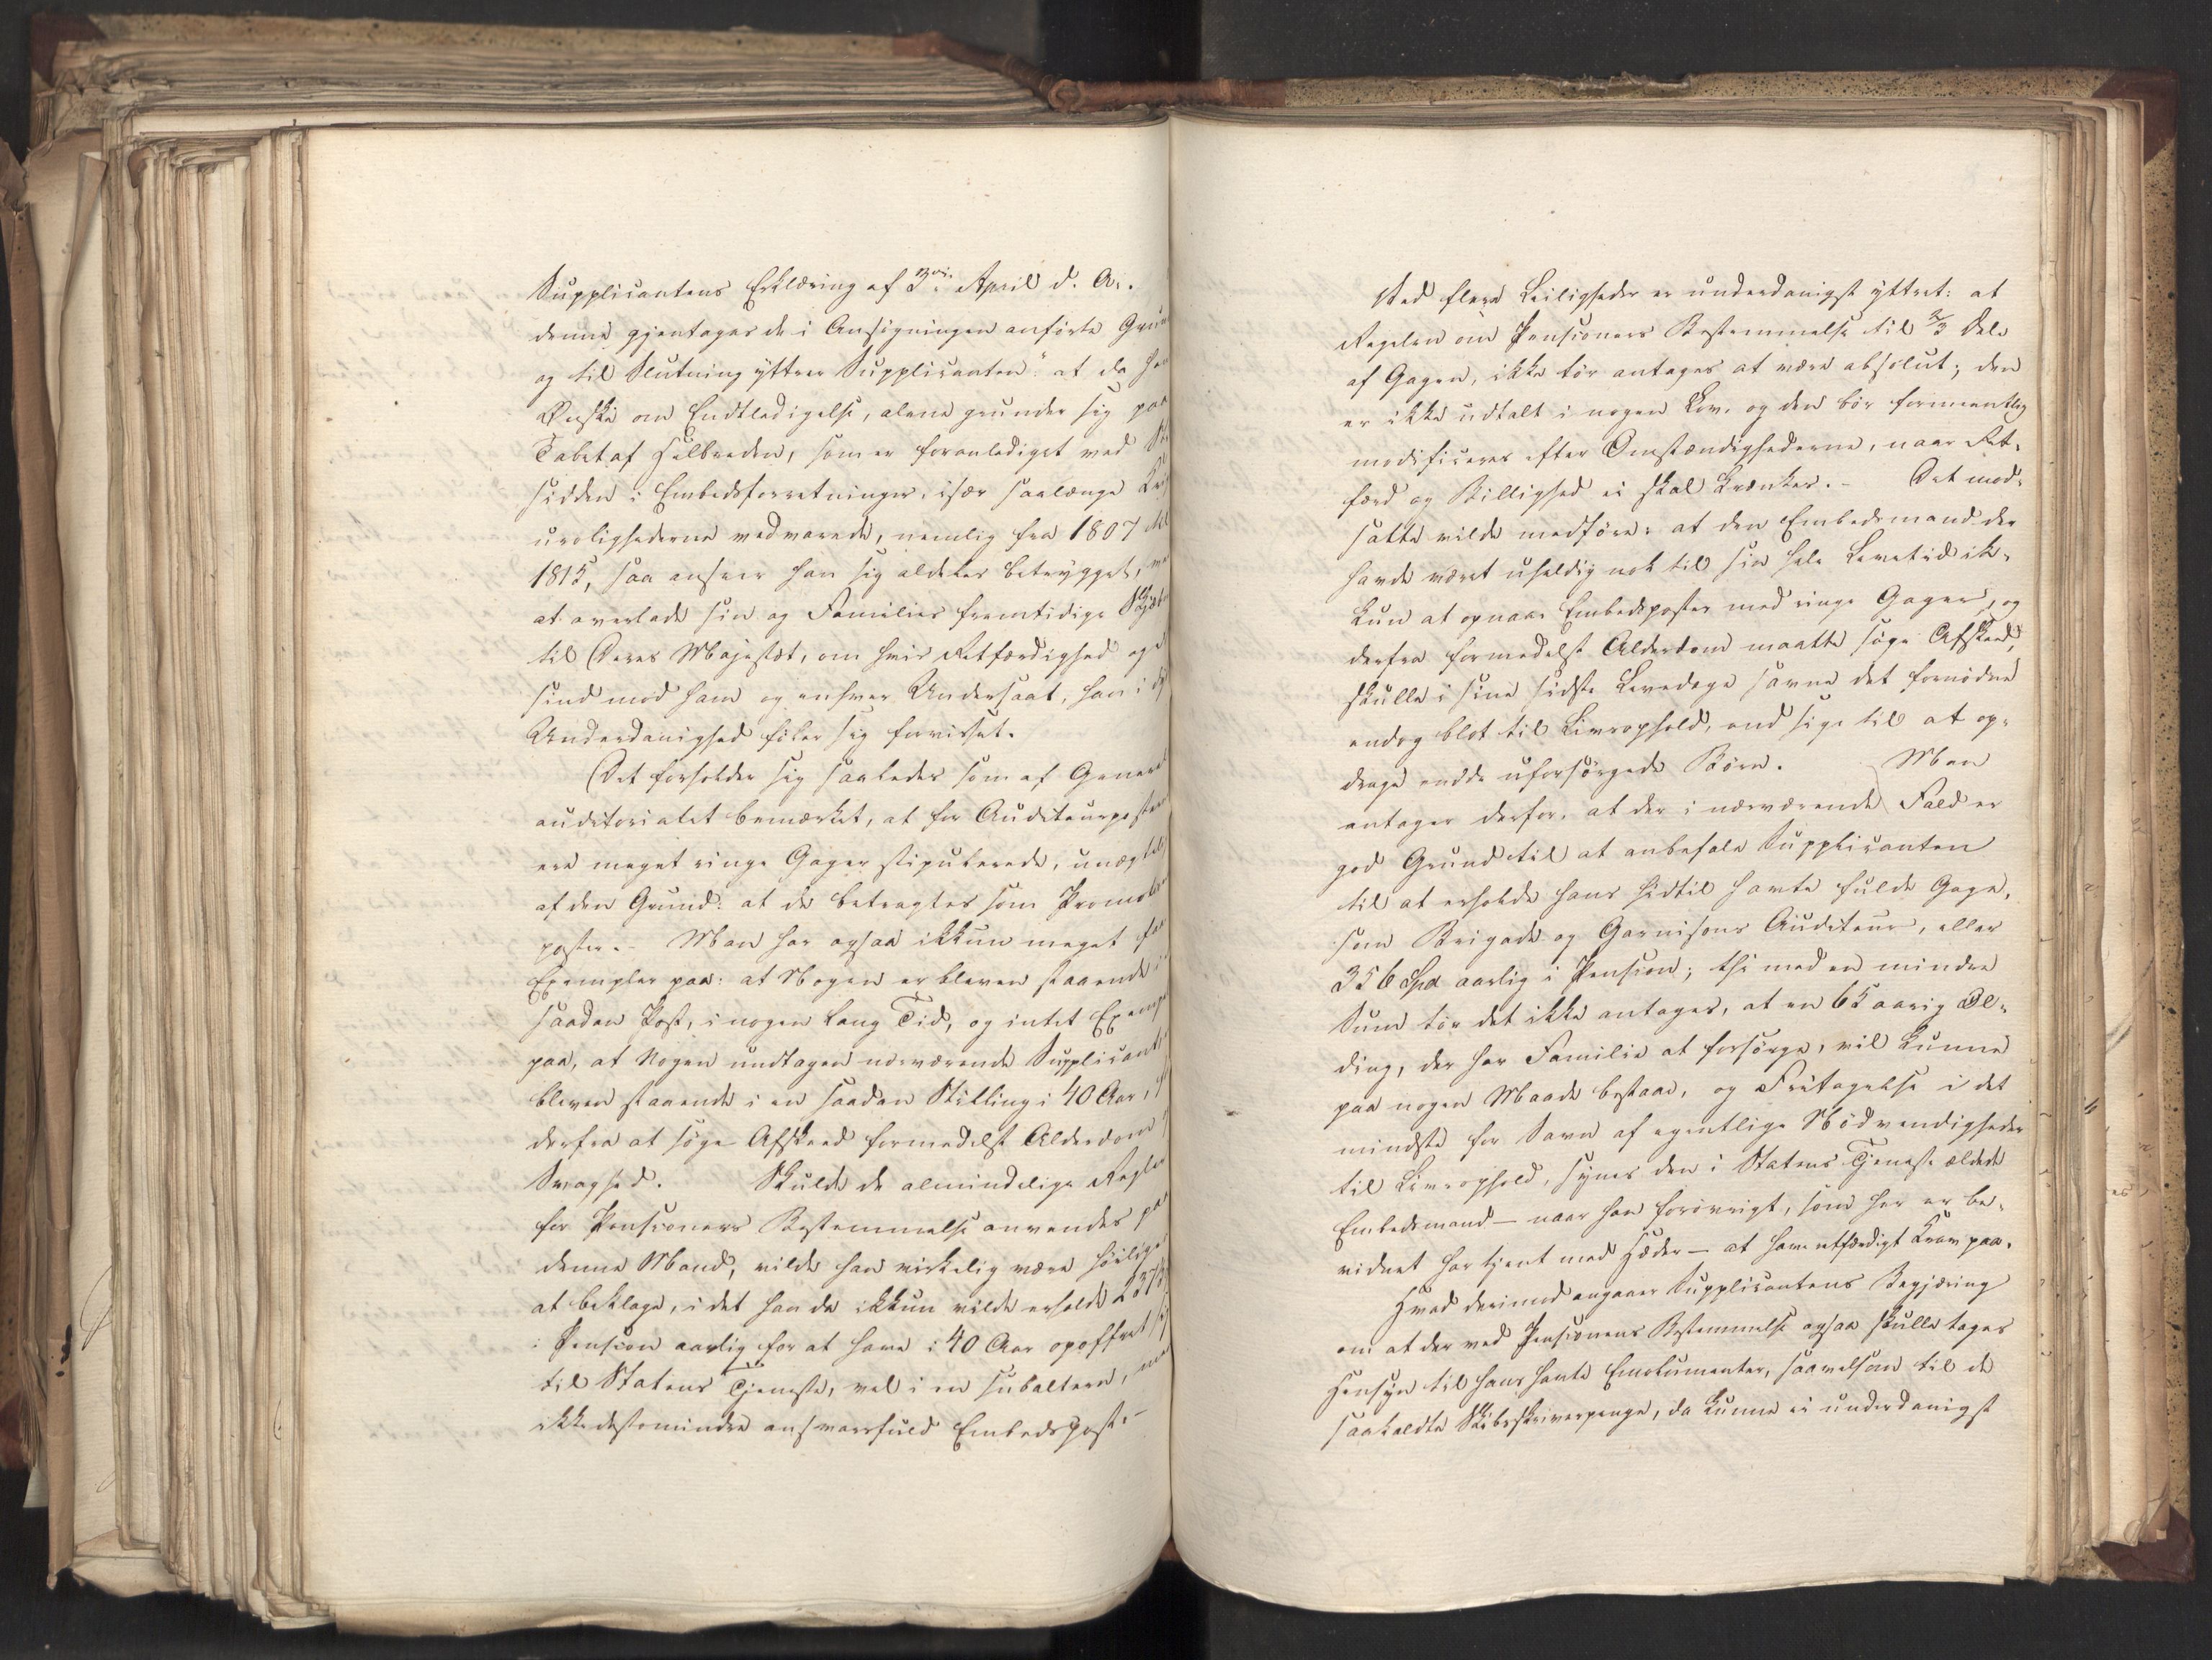 Supplicantens Erklæring af 3die April d. A..
denne gjentager de i Ansøgningen anførte Grun
og til Slutning yttrer Supplicanten: "at da han
Ønske om Endtledigelse, alene grunder sig paa
Tabet af Helbreden, som er foranlediget ved
sidden i Embedsforretninger, især saalænge Krigs
urolighederne vedvarede, nemlig fra 1807 til
1815, saa anseer han sig aldeles betrygget, ved
at overlade sin og Families fremtidige Skjæbne
til Deres Majestæt, om hvis Retfærdighed og
sind mod ham og enhver Undersaat, han i dyb
Underdanighed føler sig forvisset.
Det forholder sig saaledes som af General
auditoriatet bemærket, at for Auditeurposter
ere meget ringe Gager stipulerede, unægtelig
af den Grund: at de betragtes som Promotions
poster. - Man har ogsaa ikkun meget faa
Exempler paa: at Nogen er bleven staaende i
saadan Post, i nogen lang Tid, og intet Exempel
paa, at Nogen undtagen nærværende Supplicant
bleven staaende i en saadan Stilling i 40 Aar,
derfra at søge Afskeed formedelst Alderdom
Svaghed. Skulde de almindelige Regler
for Pensioners Bestemmelse anvendes paa
denne Mand, vilde han virkelig være høiligen
at beklage, i det han da ikkun vilde erholde 237
i Pension aarlig for at have i 40 Aar opoffret sig
til Statens Tjeneste, vel i en subaltern, men
ikkedestomindre ansvarsfuld Embedspost. -
Ved flere Leiligheder er underdanigst yttret: at
Regelen om Pensioners Bestemmelse til 2/3 Dele
af Gagen, ikke tør antages at være absolut; den
er ikke udtalt i nogen Lov. og den bør formeentlig
modificeres efter Omstændighederne, naar Ret-
færd og Billighed ei skal krænkes. - Det mod-
satte vilde medføre: at den Embedsmand der
havde været uheldig nok til sin hele Levetid ik-
kun at opnaae Embedsposter med ringe Gager, og
derfra formedelst Alderdom maatte søge Afskeed,
skulle i sine sidste Levedage savne det fornødne
endog blot til Livsophold, end sige til at op-
drage endda uforsørgede Børn. Man
antager derfor, at der i nærværende Fald er
god Grund til at anbefale Supplicanten
til at erholde hans hidtil havte fulde Gage,
som Brigade og Garnisons Auditeur, eller
356 Spd aarlig i Pension; thi med en mindre
Sum tør det ikke antages, at en 65 aarig Ol-
ding, der har Familie at forsørge, vil kunne
paa nogen Maade bestaae, og Fritagelse i det
mindste for Savn af egentlige Nødvendigheder
til Livsophold, synes den i Statens Tjeneste ældede
Embedsmand - naar han forøvrigt, som her er be-
vidnet har tjent med Hæder - at have retfærdigt Krav paa.
Hvad derimod angaaer Supplicantens Begjæring
om at der ved Pensionens Bestemmelse ogsaa skulle tages
Hensyn til hans havte Emolumenter, saavelsom til de
saakaldte Skibsskriverpenge, da kunne ei underdanigst